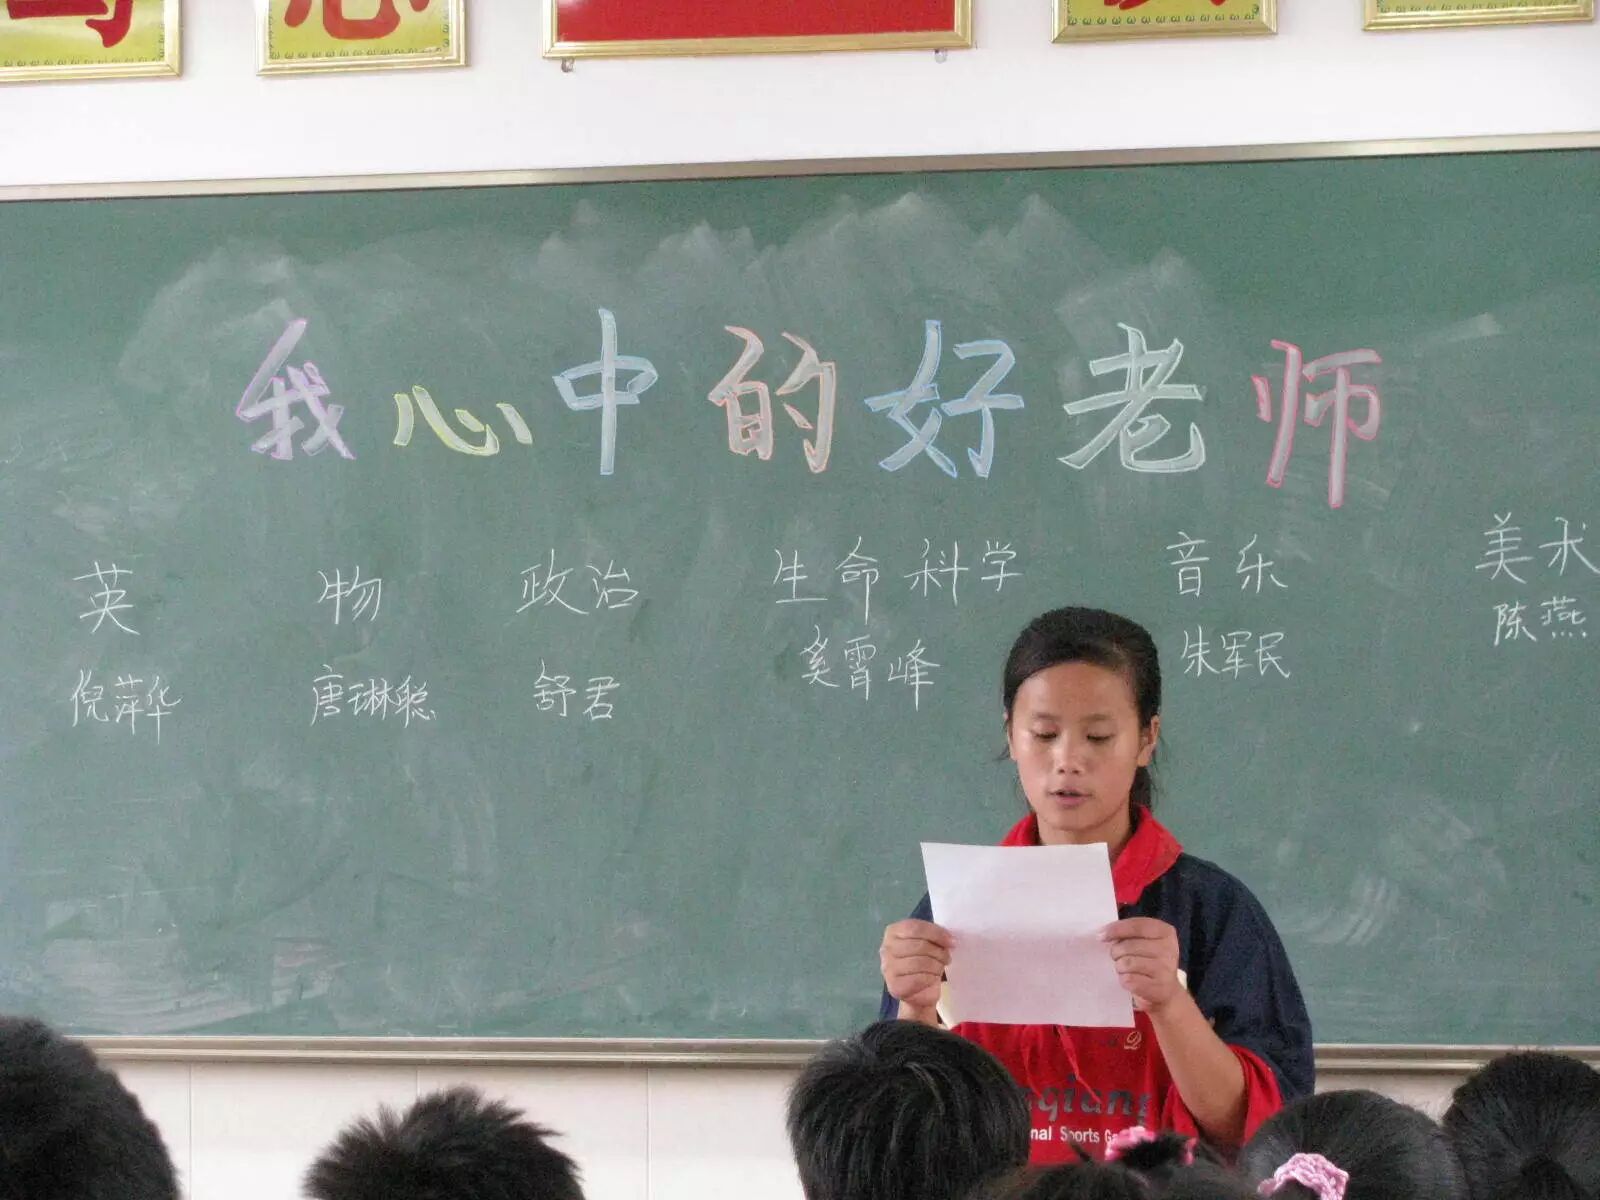 我心中的好老师
英 物 政治 生命科学 音乐 美术
倪萍华 唐琳聪 舒君 奚霄峰 朱军民 陈燕
nal Sports Ga